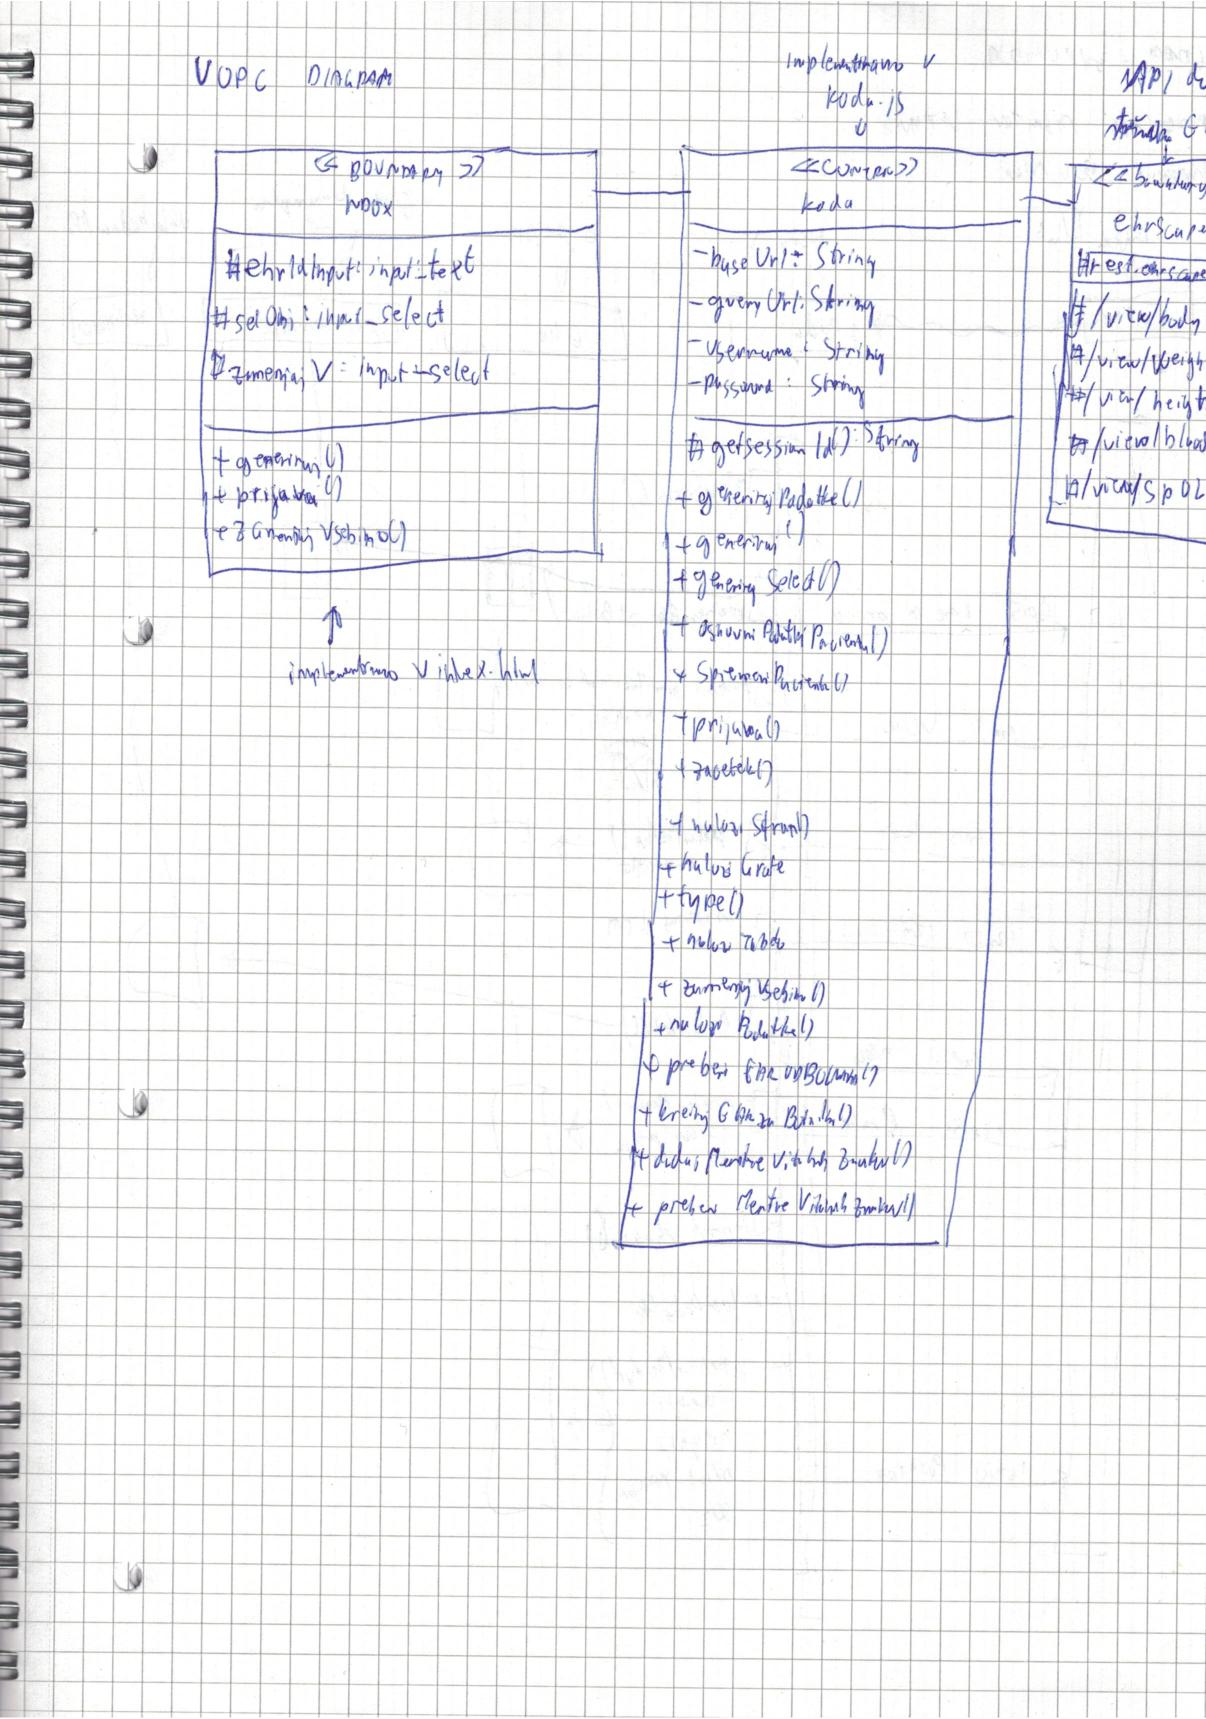 VOPC DIAGRAM
implementirano v
koda.js
API do
<<BOUNDARY>>
INDEX
#ehrIdInput: input_text
#selObj: input_select
#zamenjaj V: input_select
+ generiraj()
+ prijava()
+ zamenjaj Vsebino()
implementirano v index.html
<<CONTROL>>
koda
- baseUrl: String
- queryUrl: String
- username: String
- password: String
# getsession Id(): String
+ generiraj Podatke()
+ generiraj()
+ generiraj Select()
+ osnovni Podatki Pacienta()
+ Spremeni Pacienta()
+ prijava()
+ zacetek()
+ nalozi Stran()
+ nalozi Grafe
+ type()
+ nalozi
+ zamenjaj Vsebino()
+ nalozi Podatke()
+ preberi EHR
+ kreiraj EHR za Bolnika()
+ dodaj Meritve Vitalnih Znakov()
+ preberi Meritve Vitalnih Znakov()
<<boundary
ehrscape
#rest.ehrscape
#/view/body
#/view/weigh
#/view/height
#/view/blood
#/view/spO2